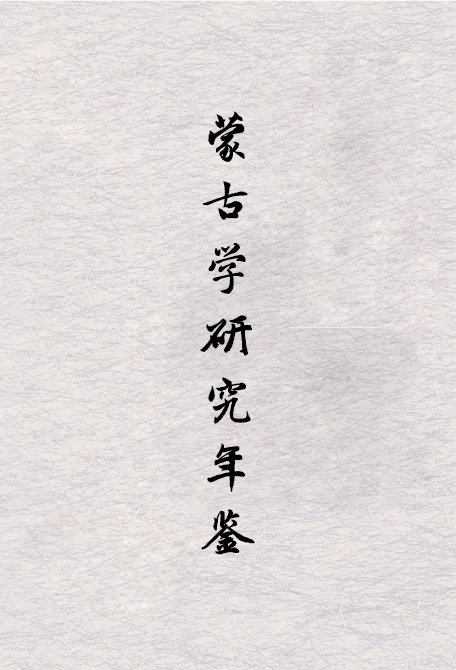 蒙古学研究年鉴